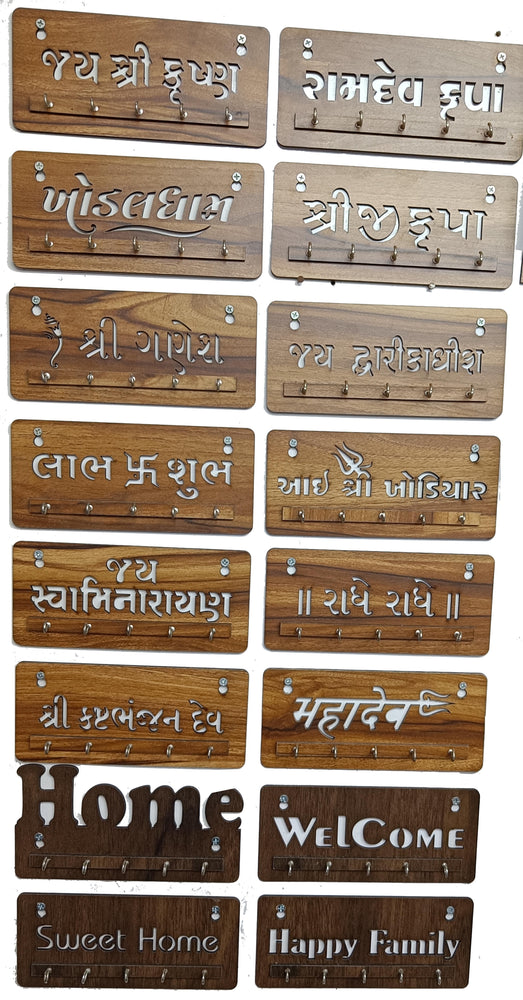 જય શ્રી કૃષ્ણ
રામદેવ કૃપા
ખોડલધામ
શ્રીજી કૃપા
શ્રી ગણેશ
જય દ્વારીકાધીશ
લાભ 卐 શુભ
આઇ શ્રી ખોડિયાર
જય
સ્વામિનારાયણ
॥ રાધે રાધે ॥
શ્રી કષ્ટભંજન દેવ
महादेव
Home
WelCome
Sweet Home
Happy Family